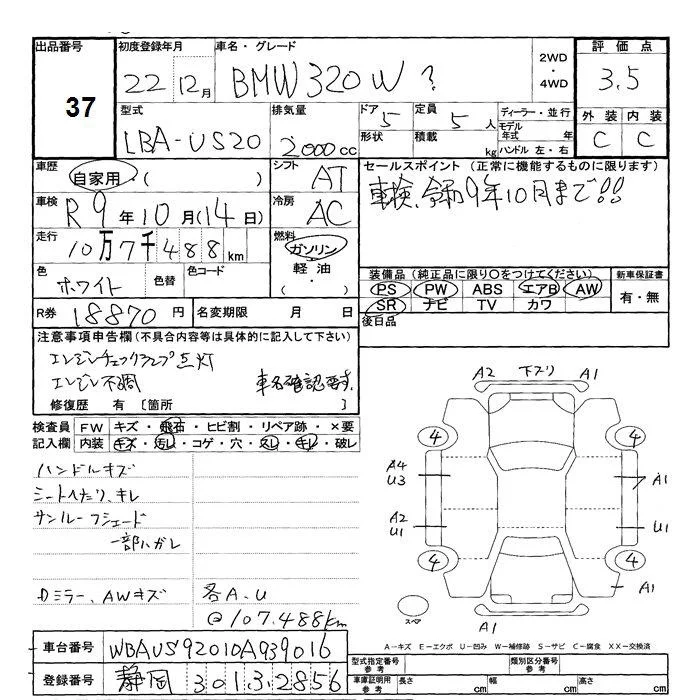 出品番号
37
初度登録年月
22 12月
車名・グレード
BMW 320W ?
2WD
・
4WD
評価点
3.5
型式
LBA-US20
排気量
2000cc
ドア 5
形状
定員 5人
積載 kg
ディーラー・並行
モデル年式 年
ハンドル 左・右
外装 内装
C C
車歴
自家用・( )
シフト AT
セールスポイント (正常に機能するものに限ります)
車検、令和9年10月まで!!
車検
R9年10月(14日)
冷房 AC
走行
10万7千488km
燃料
ガソリン
軽油
・( )
色 ホワイト
色替
色コード
装備品 (純正品に限り○をつけてください)
PS PW ABS エアB AW
SR ナビ TV カワ
新車保証書
有・無
R券 18870円
名変期限 月 日
後日品
注意事項申告欄 (不具合内容等は具体的に記入して下さい)
エンジンチェックランプ点灯
エンジン不調 車名確認要す。
修復歴 有 [箇所 ]
検査員 FW キズ・飛石・ヒビ割・リペア跡・×要
記入欄 内装 キズ・汚レ・コゲ・穴・スレ・キレ・破レ
ハンドルキズ
シートヘたり、キレ
サンルーフシェード
一部ハガレ
Dミラー、AWキズ 各A.U
@107.488km
A2 下スリ A1
4 4
A4
U3
A1
A2
U1
U1
4 4
A1
スペア
A1
A-キズ E-エクボ U-凹み W-補修跡 S-サビ C-腐食 XX-交換済
車台番号 WBAUS92010A939016
登録番号 静岡 301 3 2856
型式指定番号
参考
類別区分番号
参考
車庫証明用
参考
長さ cm
幅 cm
高さ cm